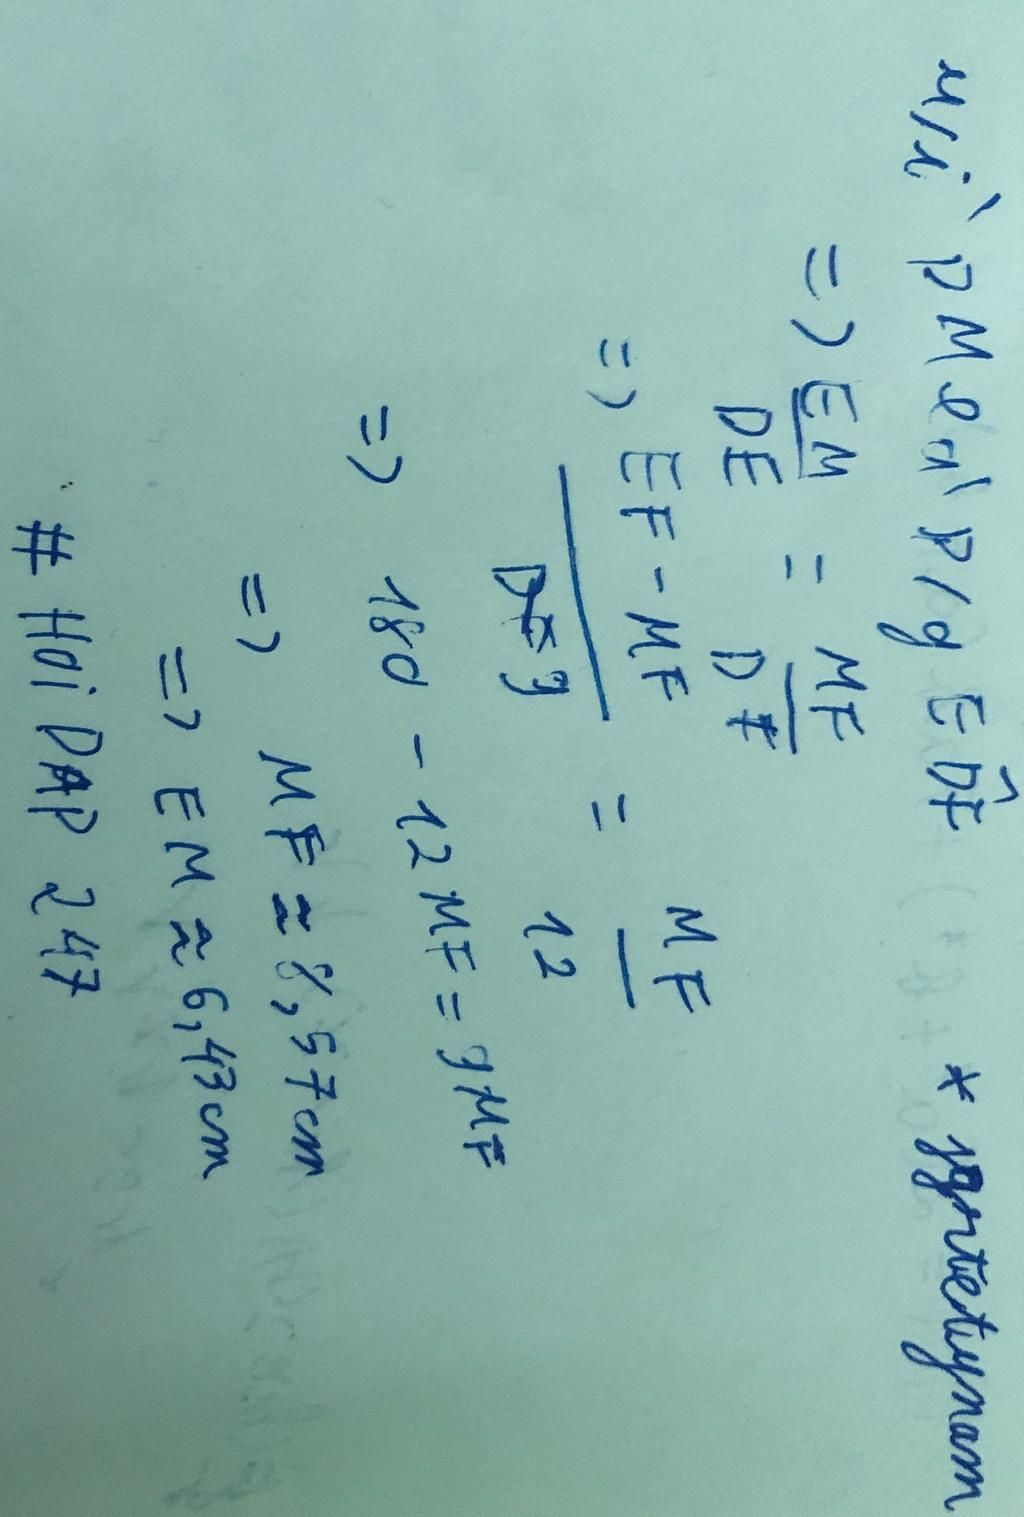 Vì DM là p/g EDF̂ * jgrtetynam
=> EM/DE = MF/DF
=> EF - MF / 9 = MF / 12
=> 180 - 12MF = 9MF
=> MF ≈ 8,57cm
=> EM ≈ 6,43cm
# HOiDAP 247